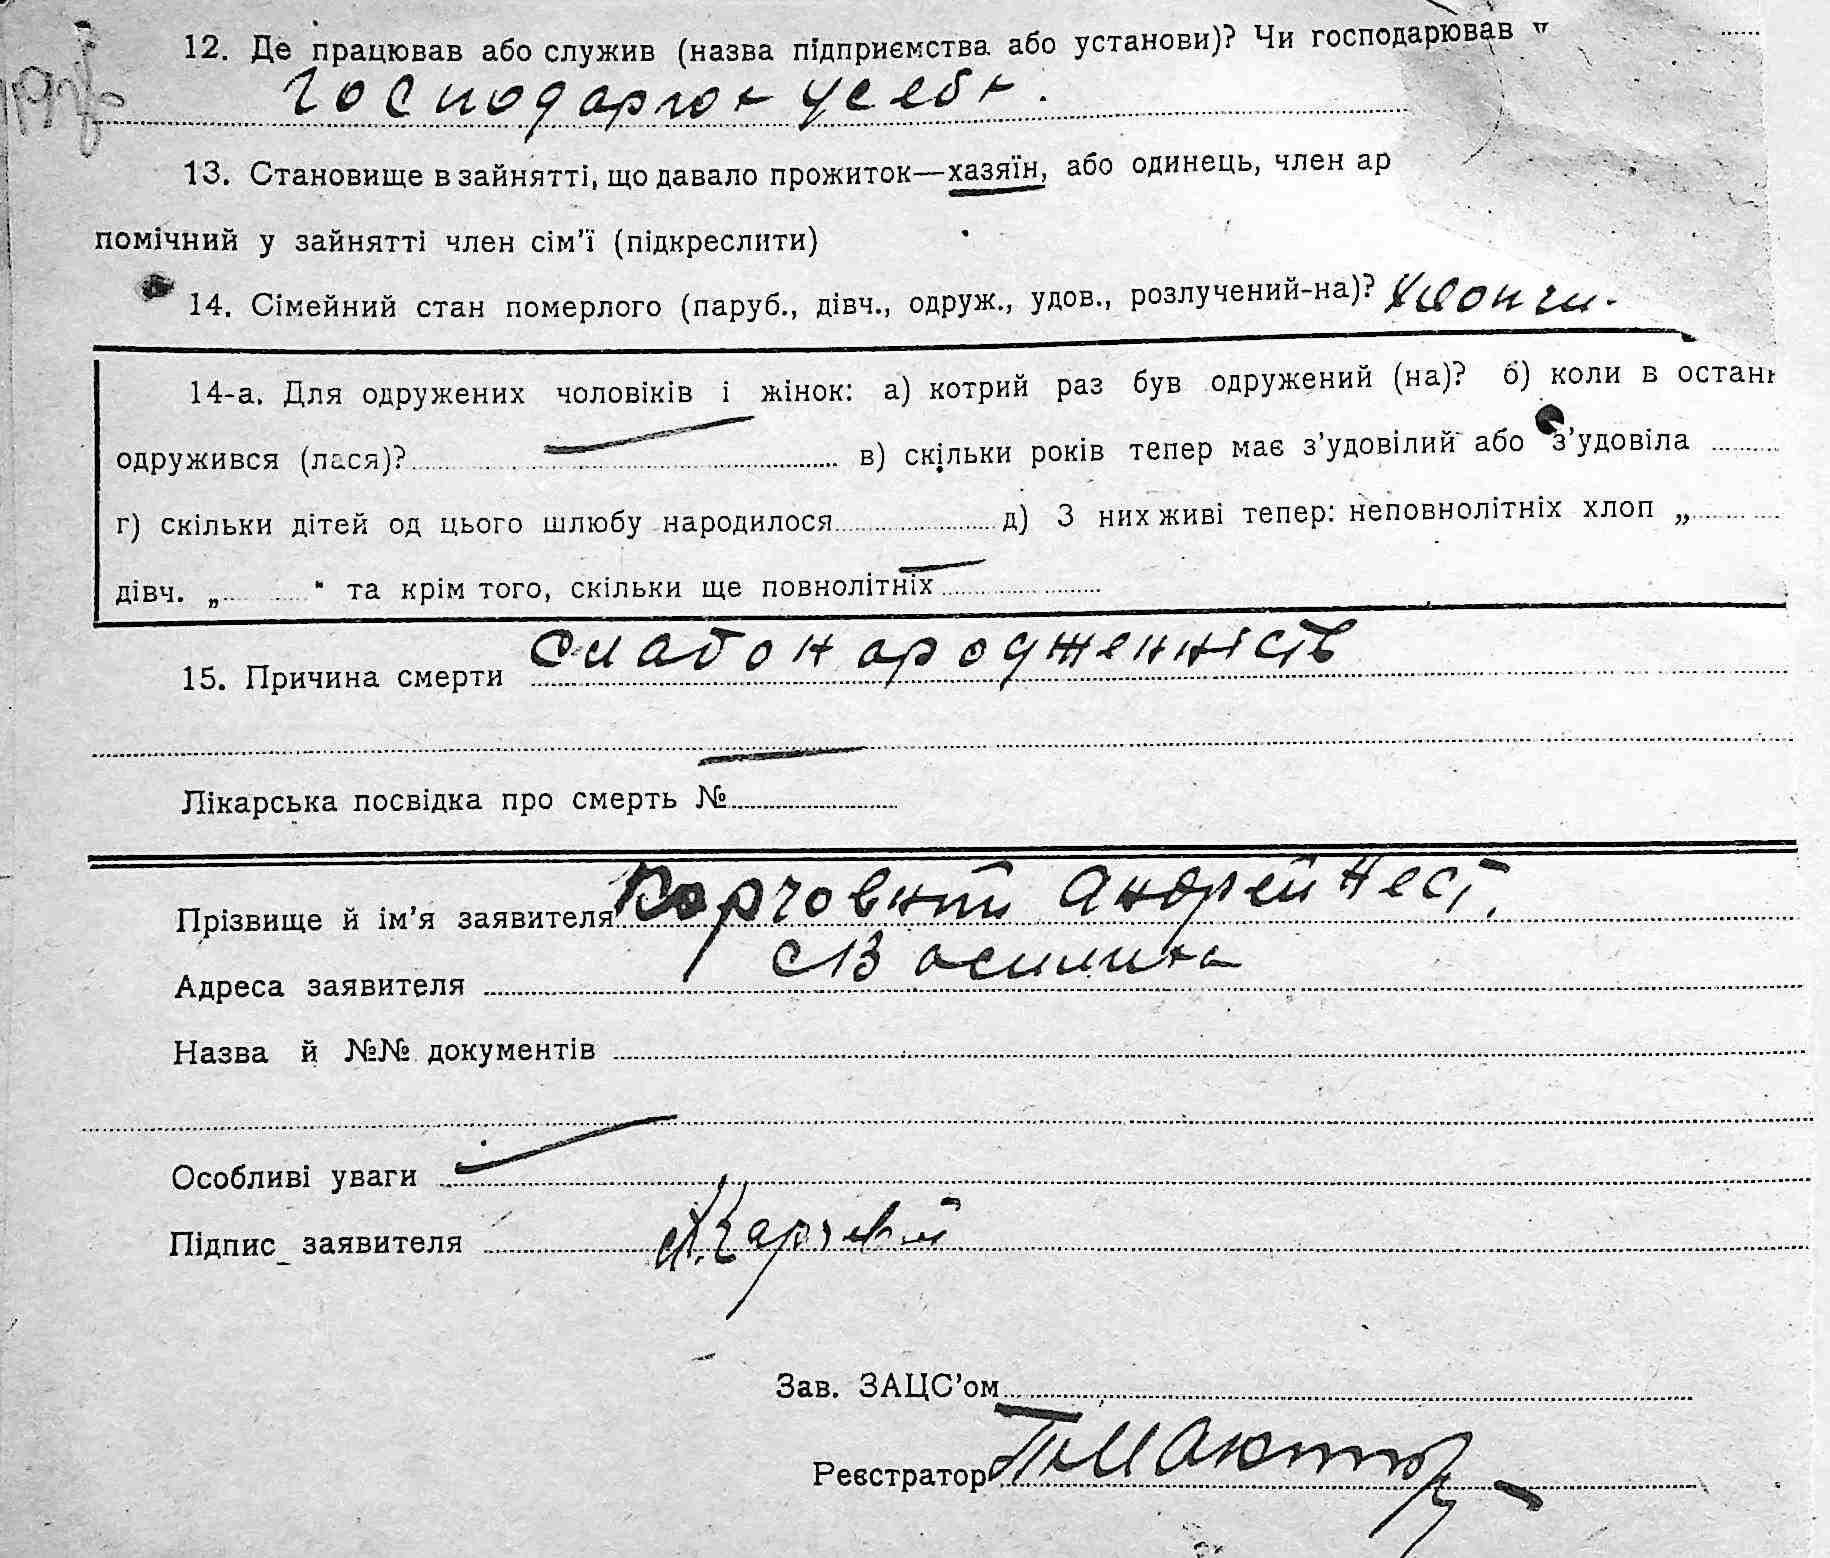 12. Де працював або служив (назва підприємства або установи)? Чи господарював "
Господарює у себе.
13. Становище в зайнятті, що давало прожиток—хазяїн, або одинець, член ар
помічний у зайнятті член сім'ї (підкреслити)
14. Сімейний стан померлого (паруб., дівч., одруж., удов., розлучений-на)?
14-а. Для одружених чоловіків і жінок: а) котрий раз був одружений (на)? б) коли в останн
одружився (лася)? в) скільки років тепер має з'удовілий або з'удовіла
г) скільки дітей од цього шлюбу народилося д) З них живі тепер: неповнолітніх хлоп „
дівч. „ " та крім того, скільки ще повнолітніх
15. Причина смерти Слабонародженність
Лікарська посвідка про смерть №
Прізвище й ім'я заявителя Корчовний Андрей Нест.
Адреса заявителя с Василівка
Назва й №№ документів
Особливі уваги
Підпис заявителя
Зав. ЗАЦС'ом
Реєстратор